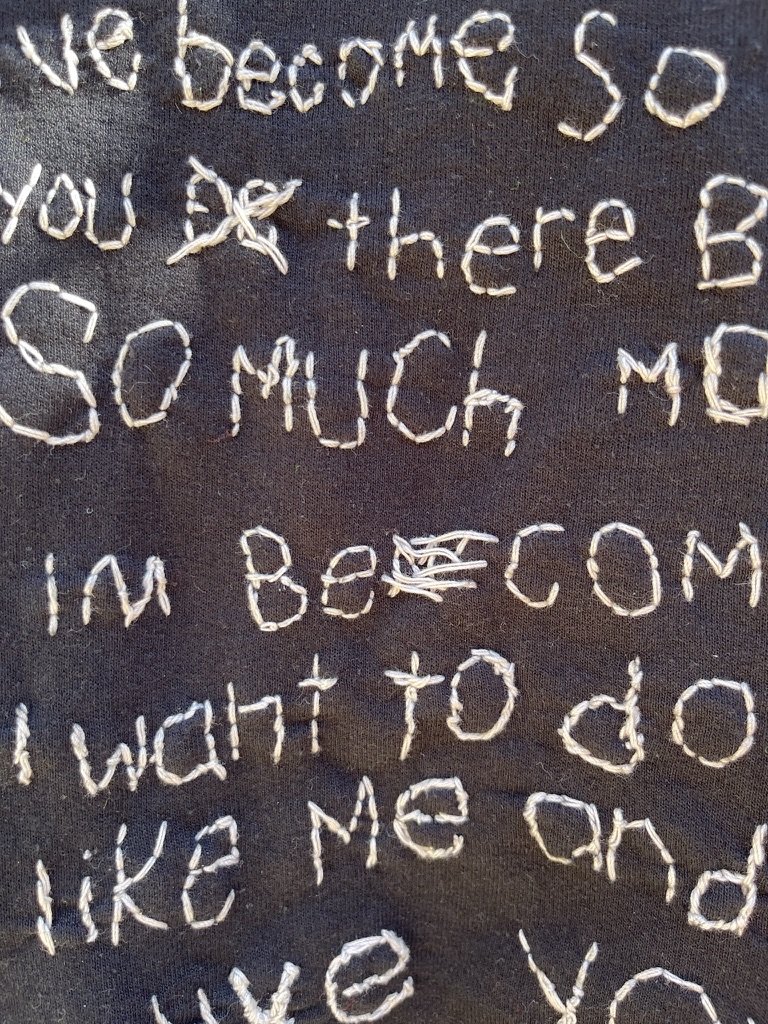 ve become so
you there B
So MUCh MO
iM Be COM
I want to do
like Me and
ike yo